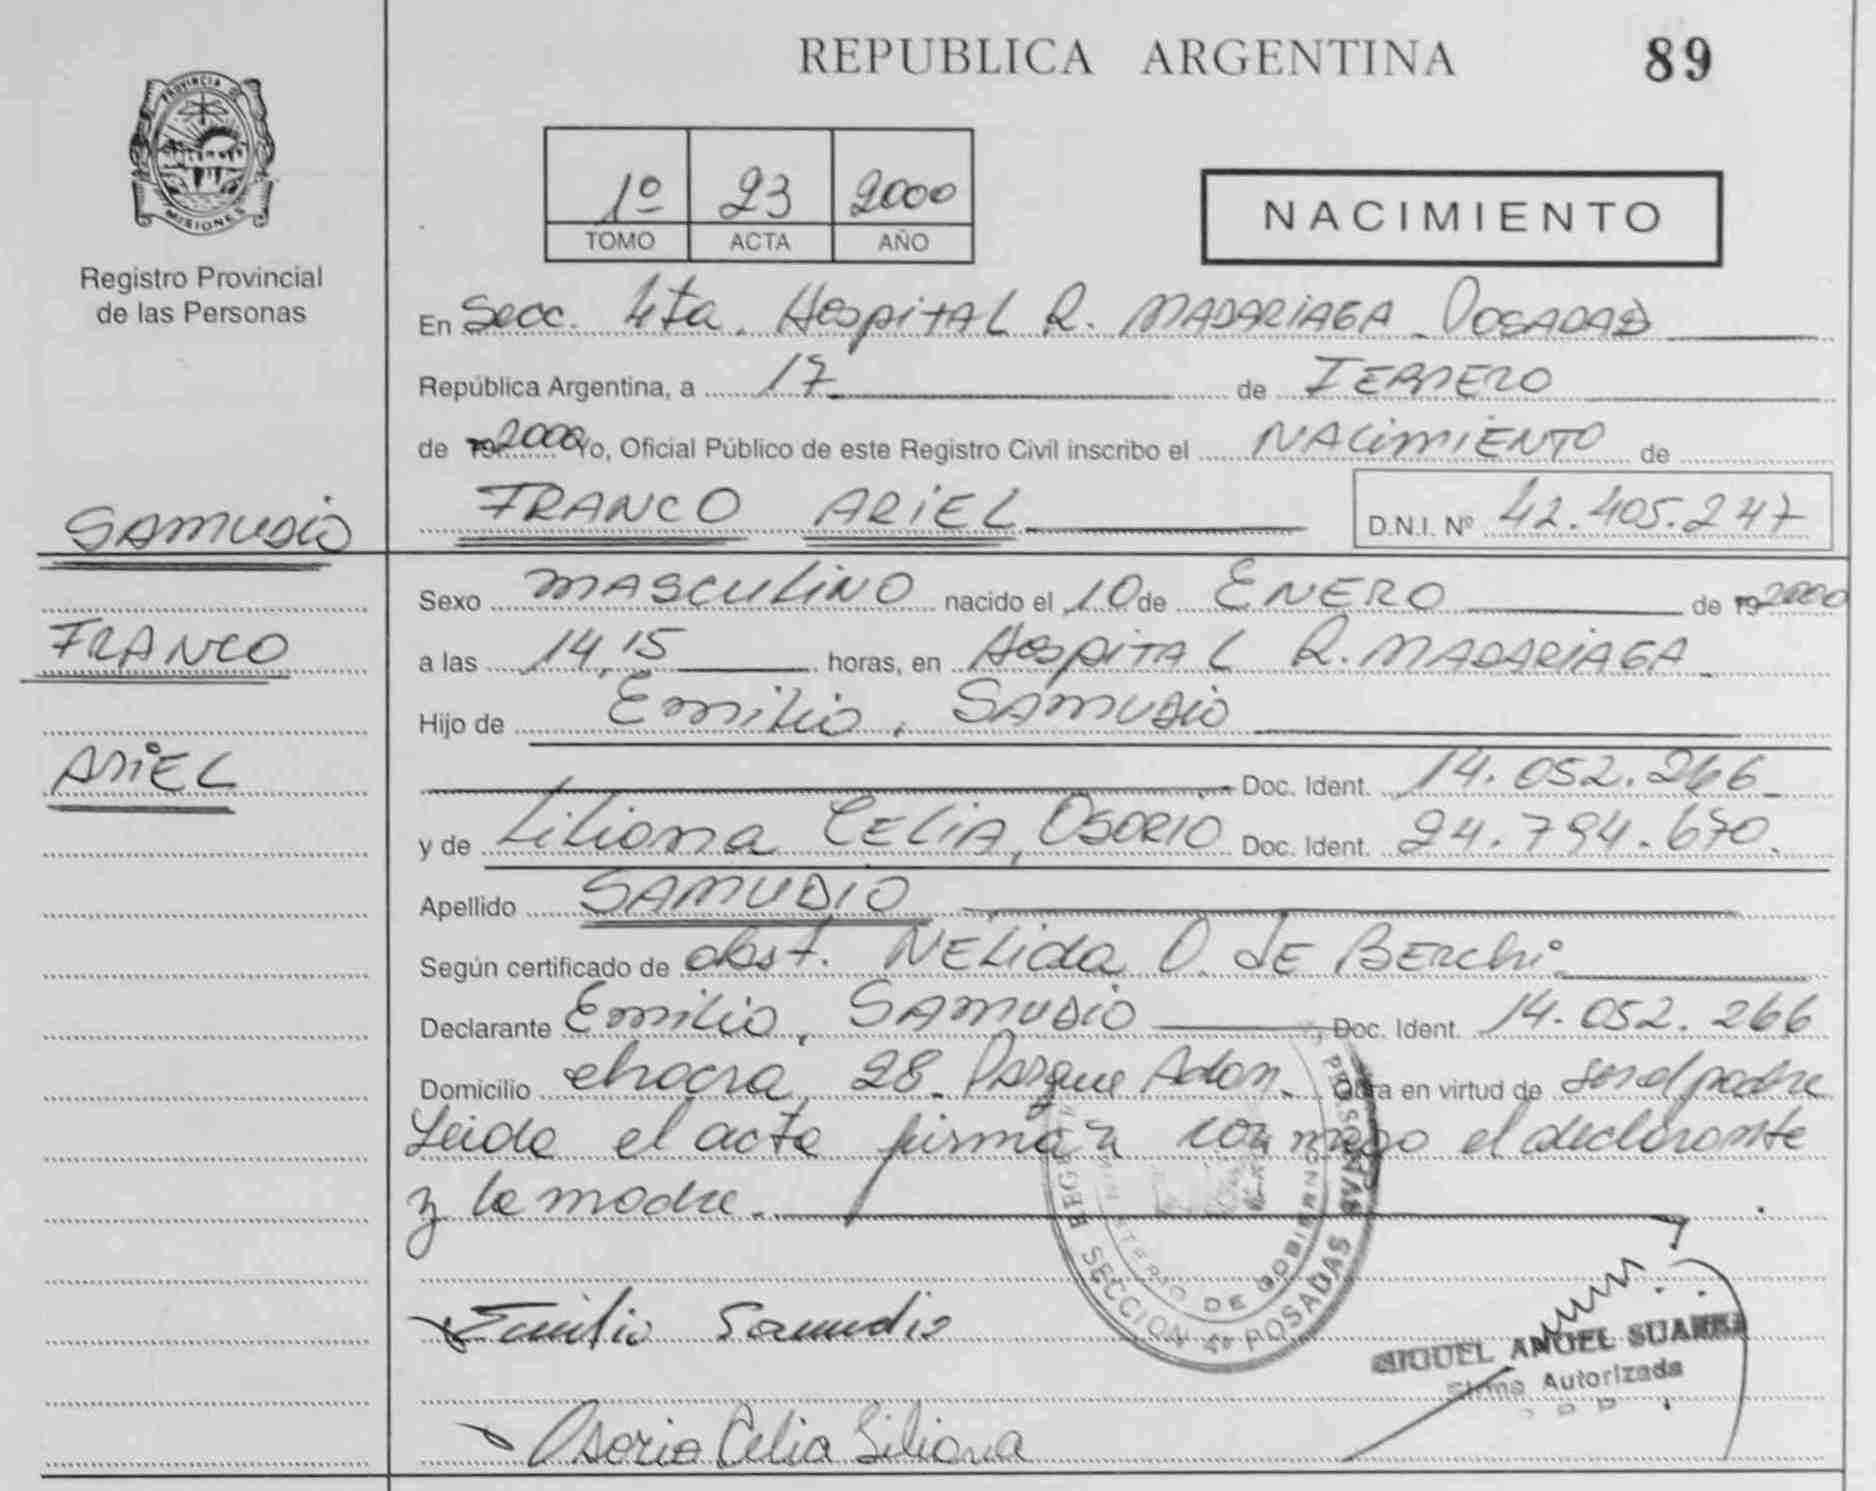 REPUBLICA ARGENTINA 89
PROVINCIA D
MISIONES
Registro Provincial
de las Personas
1º 23 2000
TOMO ACTA AÑO
NACIMIENTO
En Secc. 4ta. Hospital R. MADARIAGA - POSADAS
República Argentina, a 17 de
de 19 2000 Yo, Oficial Público de este Registro Civil inscribo el NACIMIENTO de
FRANCO ARIEL D.N.I. Nº 42.405.247
SAMUDIO
FRANCO
ARIEL
Sexo MASCULINO nacido el 10 de ENERO de 19 2000
a las 14,15 horas, en Hospital R. MADARIAGA
Hijo de Emilio, SAMUDIO
Doc. Ident. 14.052.266
y de Liliana CELIA, OSORIO Doc. Ident. 24.794.670.
Apellido SAMUDIO
Según certificado de obst. NELida O. de BERchi
Declarante Emilio, SAMUDIO Doc. Ident. 14.052.266
Domicilio chacra 28 - Parque Adam. Obra en virtud de ser el padre
Leida el acta firman conmigo el declarante
y la madre.
REGI SECCION 4º POSADAS
MINISTERIO DE GOBIERNO
Emilio Samudio
MIGUEL ANGEL SUAREZ
Firma Autorizada
Osorio Celia Liliana